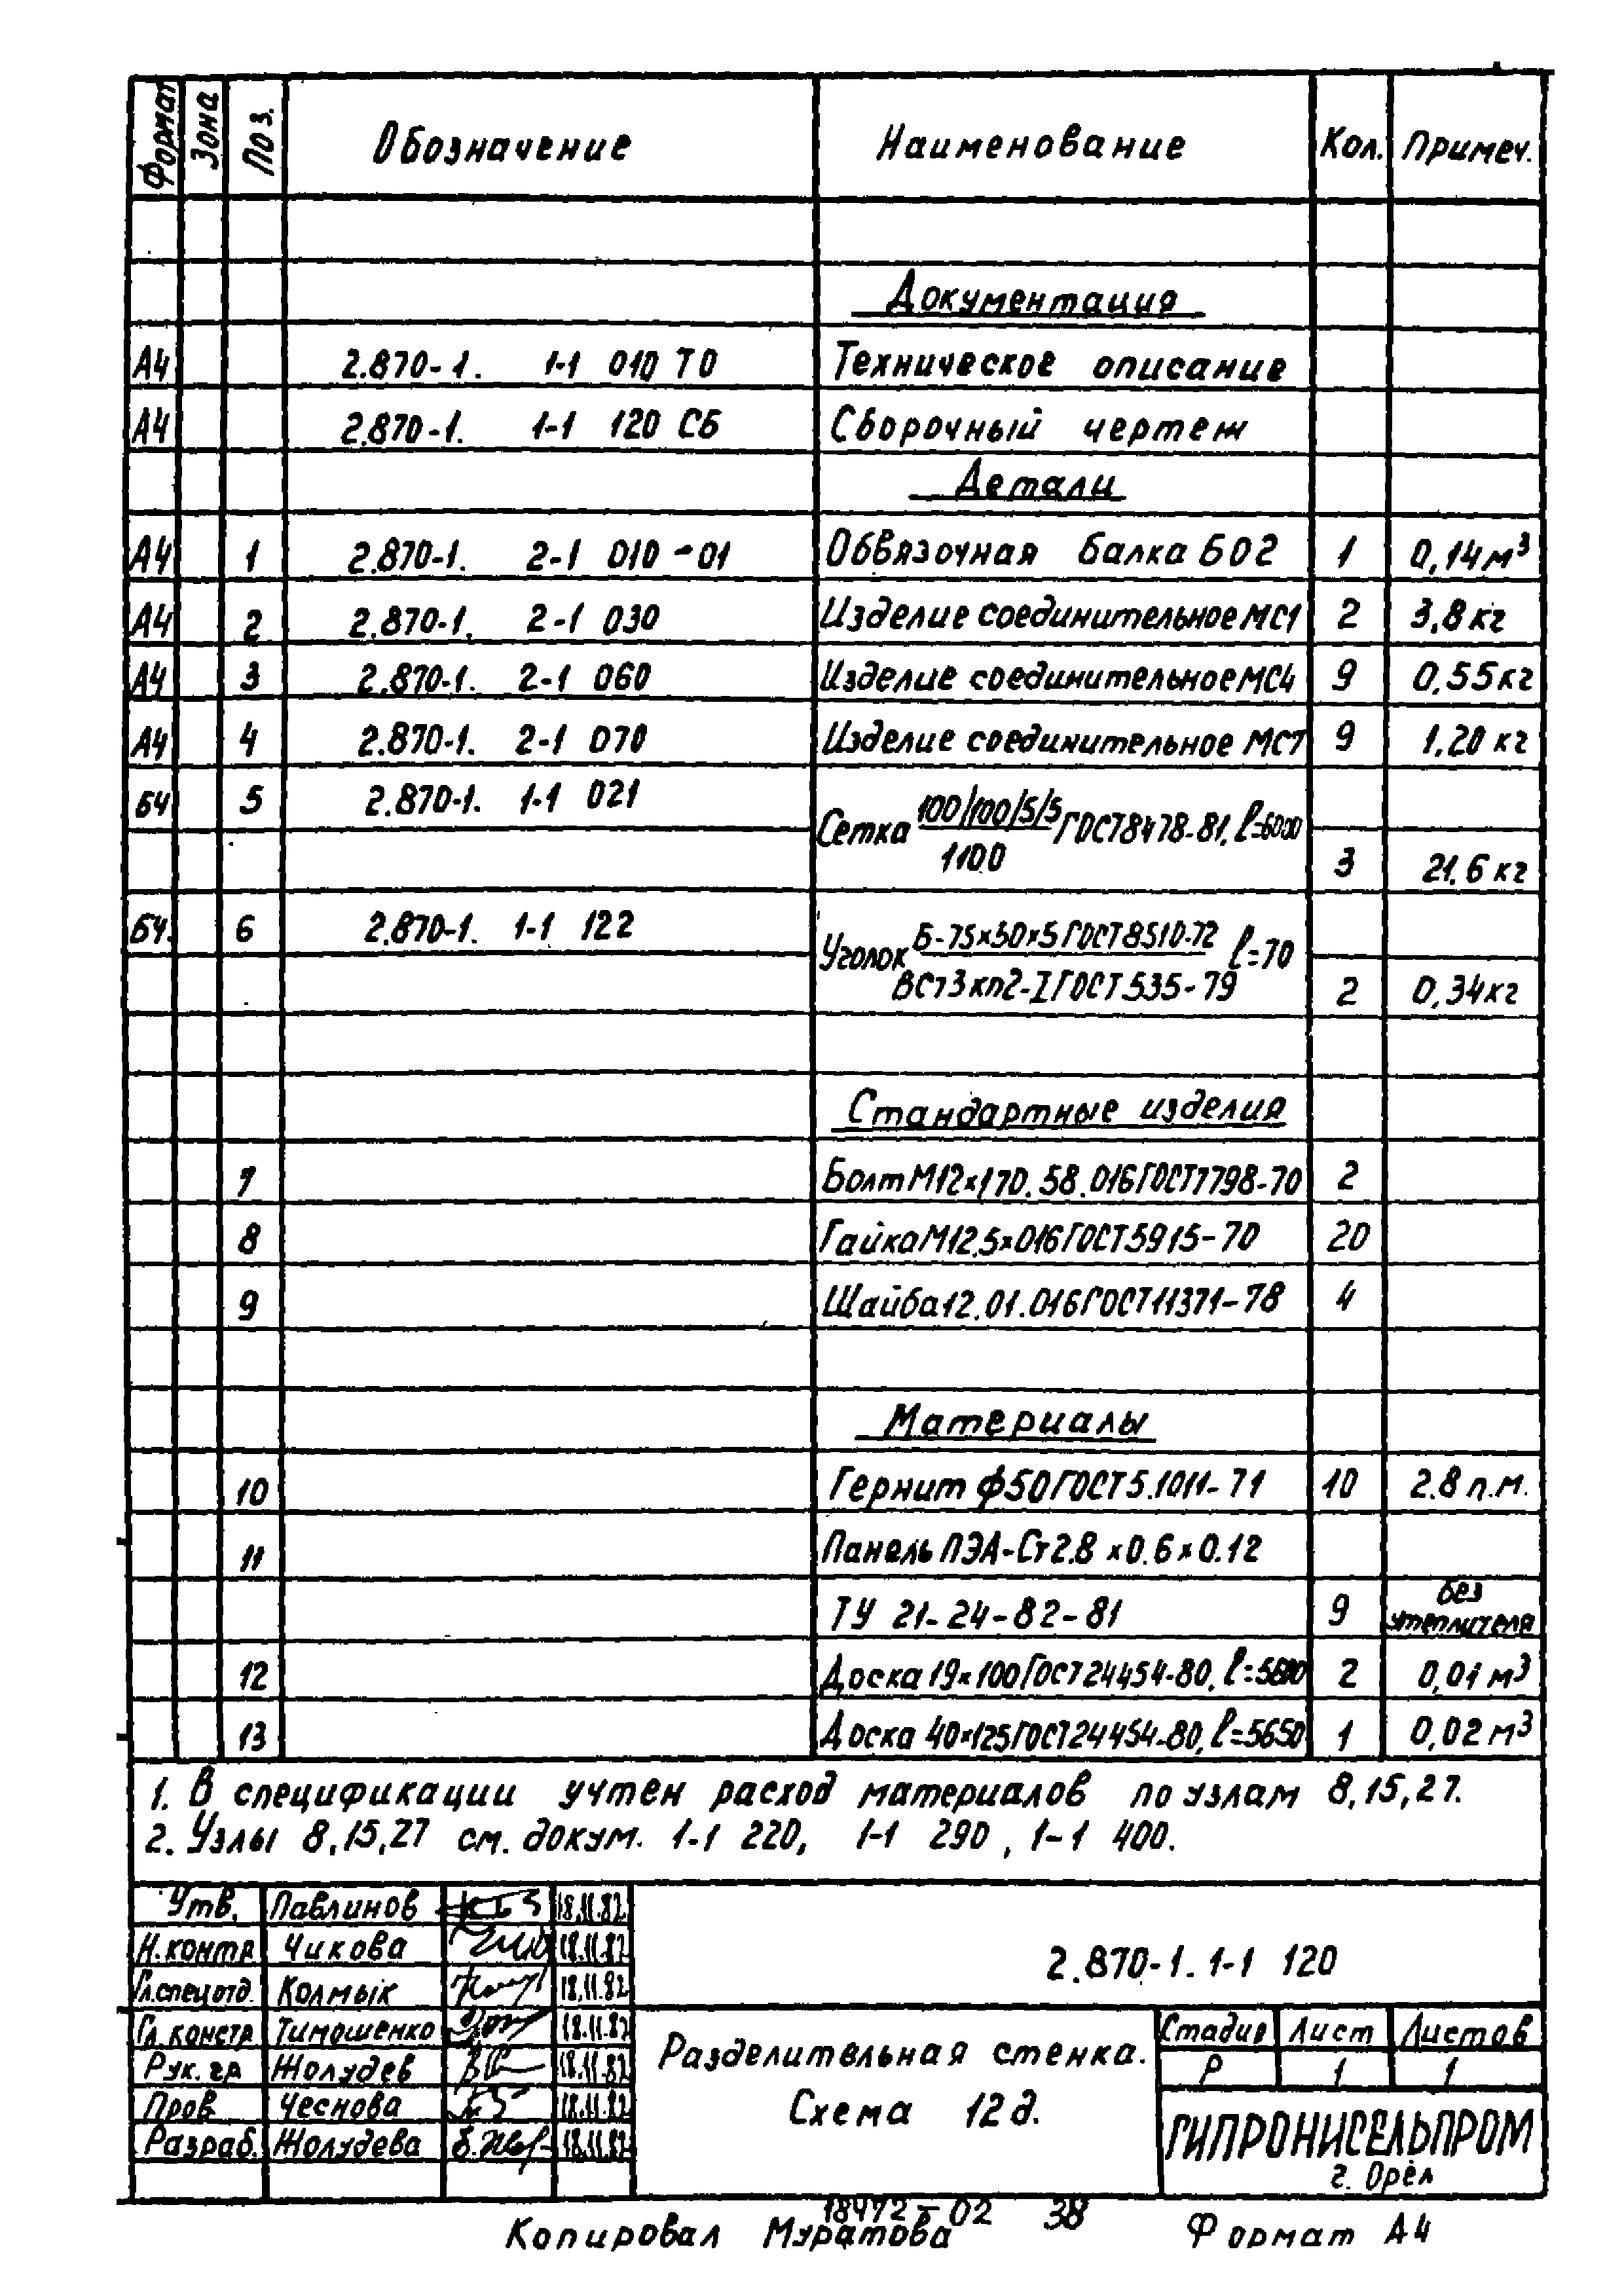 Формат Зона Поз. Обозначение Наименование Кол. Примеч.
Документация
А4 2.870-1. 1-1 010 ТО Техническое описание
А4 2.870-1. 1-1 120 СБ Сборочный чертеж
Детали
А4 1 2.870-1. 2-1 010-01 Обвязочная балка БО2 1 0,14 м³
А4 2 2.870-1. 2-1 030 Изделие соединительное МС1 2 3,8 кг
А4 3 2.870-1. 2-1 060 Изделие соединительное МС4 9 0.55 кг
А4 4 2.870-1. 2-1 070 Изделие соединительное МС7 9 1.20 кг
БЧ 5 2.870-1. 1-1 021 Сетка 100/100/5/5 ГОСТ 8478-81, ℓ=6000
1100 3 21.6 кг
БЧ. 6 2.870-1. 1-1 122 Уголок Б-75×50×5 ГОСТ 8510-72 ℓ=70
ВСт3кп2-I ГОСТ 535-79 2 0,34 кг
Стандартные изделия
7 Болт М12×170.58.016 ГОСТ 7798-70 2
8 Гайка М12.5×016 ГОСТ 5915-70 20
9 Шайба 12.01.016 ГОСТ 11371-78 4
Материалы
10 Гернит ф50 ГОСТ 5.1011-71 10 2.8 п.м.
11 Панель ПЭА-Ст 2.8×0.6×0.12
ТУ 21-24-82-81 9 без утеплителя
12 Доска 19×100 ГОСТ 24454-80, 2 0,01 м³
13 Доска 40×125 ГОСТ 24454-80, ℓ=5650 1 0,02 м³
1. В спецификации учтен расход материалов по узлам 8,15,27.
2. Узлы 8,15,27 см. докум. 1-1 220, 1-1 290, 1-1 400.
Утв. Павлинов 18.11.82
Н.контр Чикова 18.11.82
Гл.спец отд. Колмык 18.11.82
Гл.констр Тимошенко 18.11.82
Рук.гр Жолудев 18.11.82
Пров Чеснова 18.11.82
Разраб. Жолудева 18.11.82
2.870-1. 1-1 120
Разделительная стенка.
Схема 12д.
Стадия Лист Листов
Р 1 1
ГИПРОНИСЕЛЬПРОМ
г. Орёл
18472-02 38
Копировал Муратова Формат А4